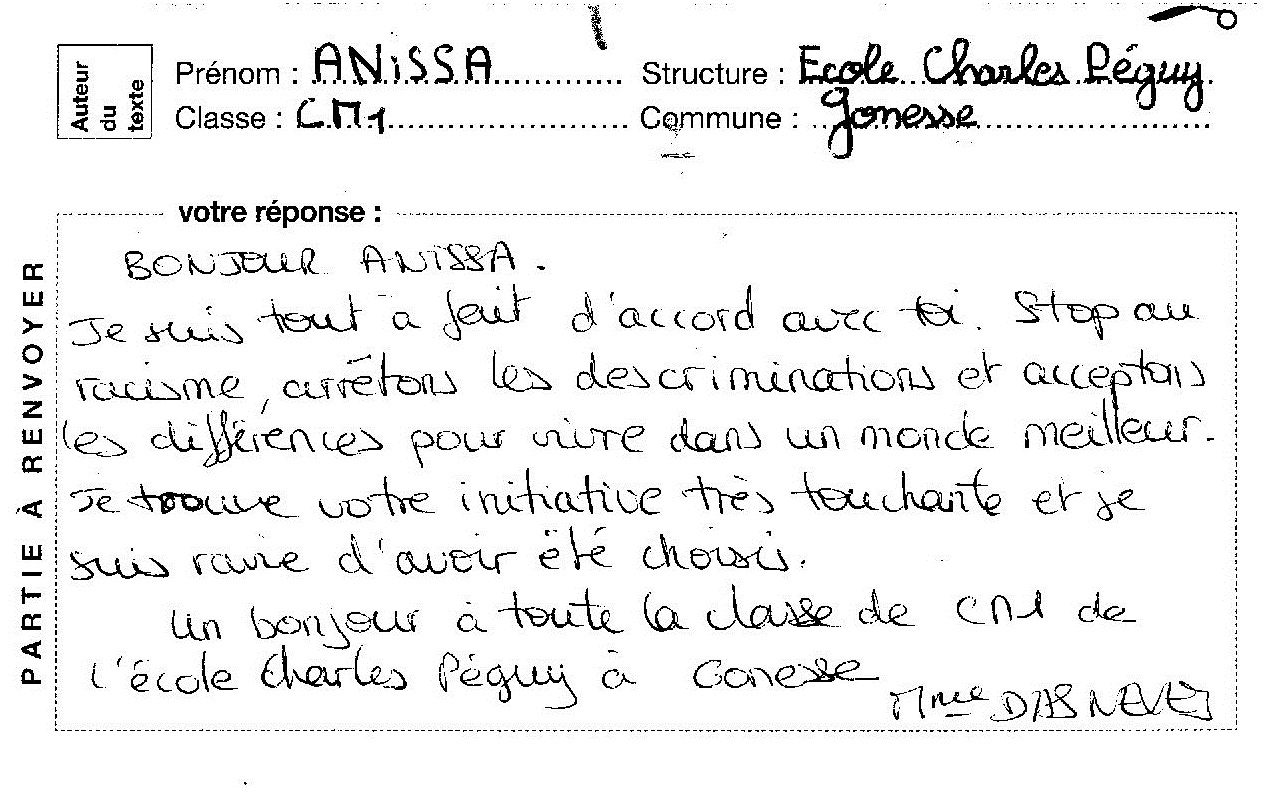 Auteur du texte
Prénom : ANiSSA Structure : Ecole Charles Péguy
Classe : CM1 Commune : Gonesse
votre réponse :
PARTIE À RENVOYER
BONJOUR ANISSA.
Je suis tout a fait d'accord avec toi. Stop au
racisme, arrêtons les descriminations et acceptons
les différences pour vivre dans un monde meilleur.
Je trouve votre initiative très touchante et je
suis ravie d'avoir été choisis.
Un bonjour à toute la classe de CM1 de
L'école Charles Péguy à Gonesse
Mme DIAS NEVES